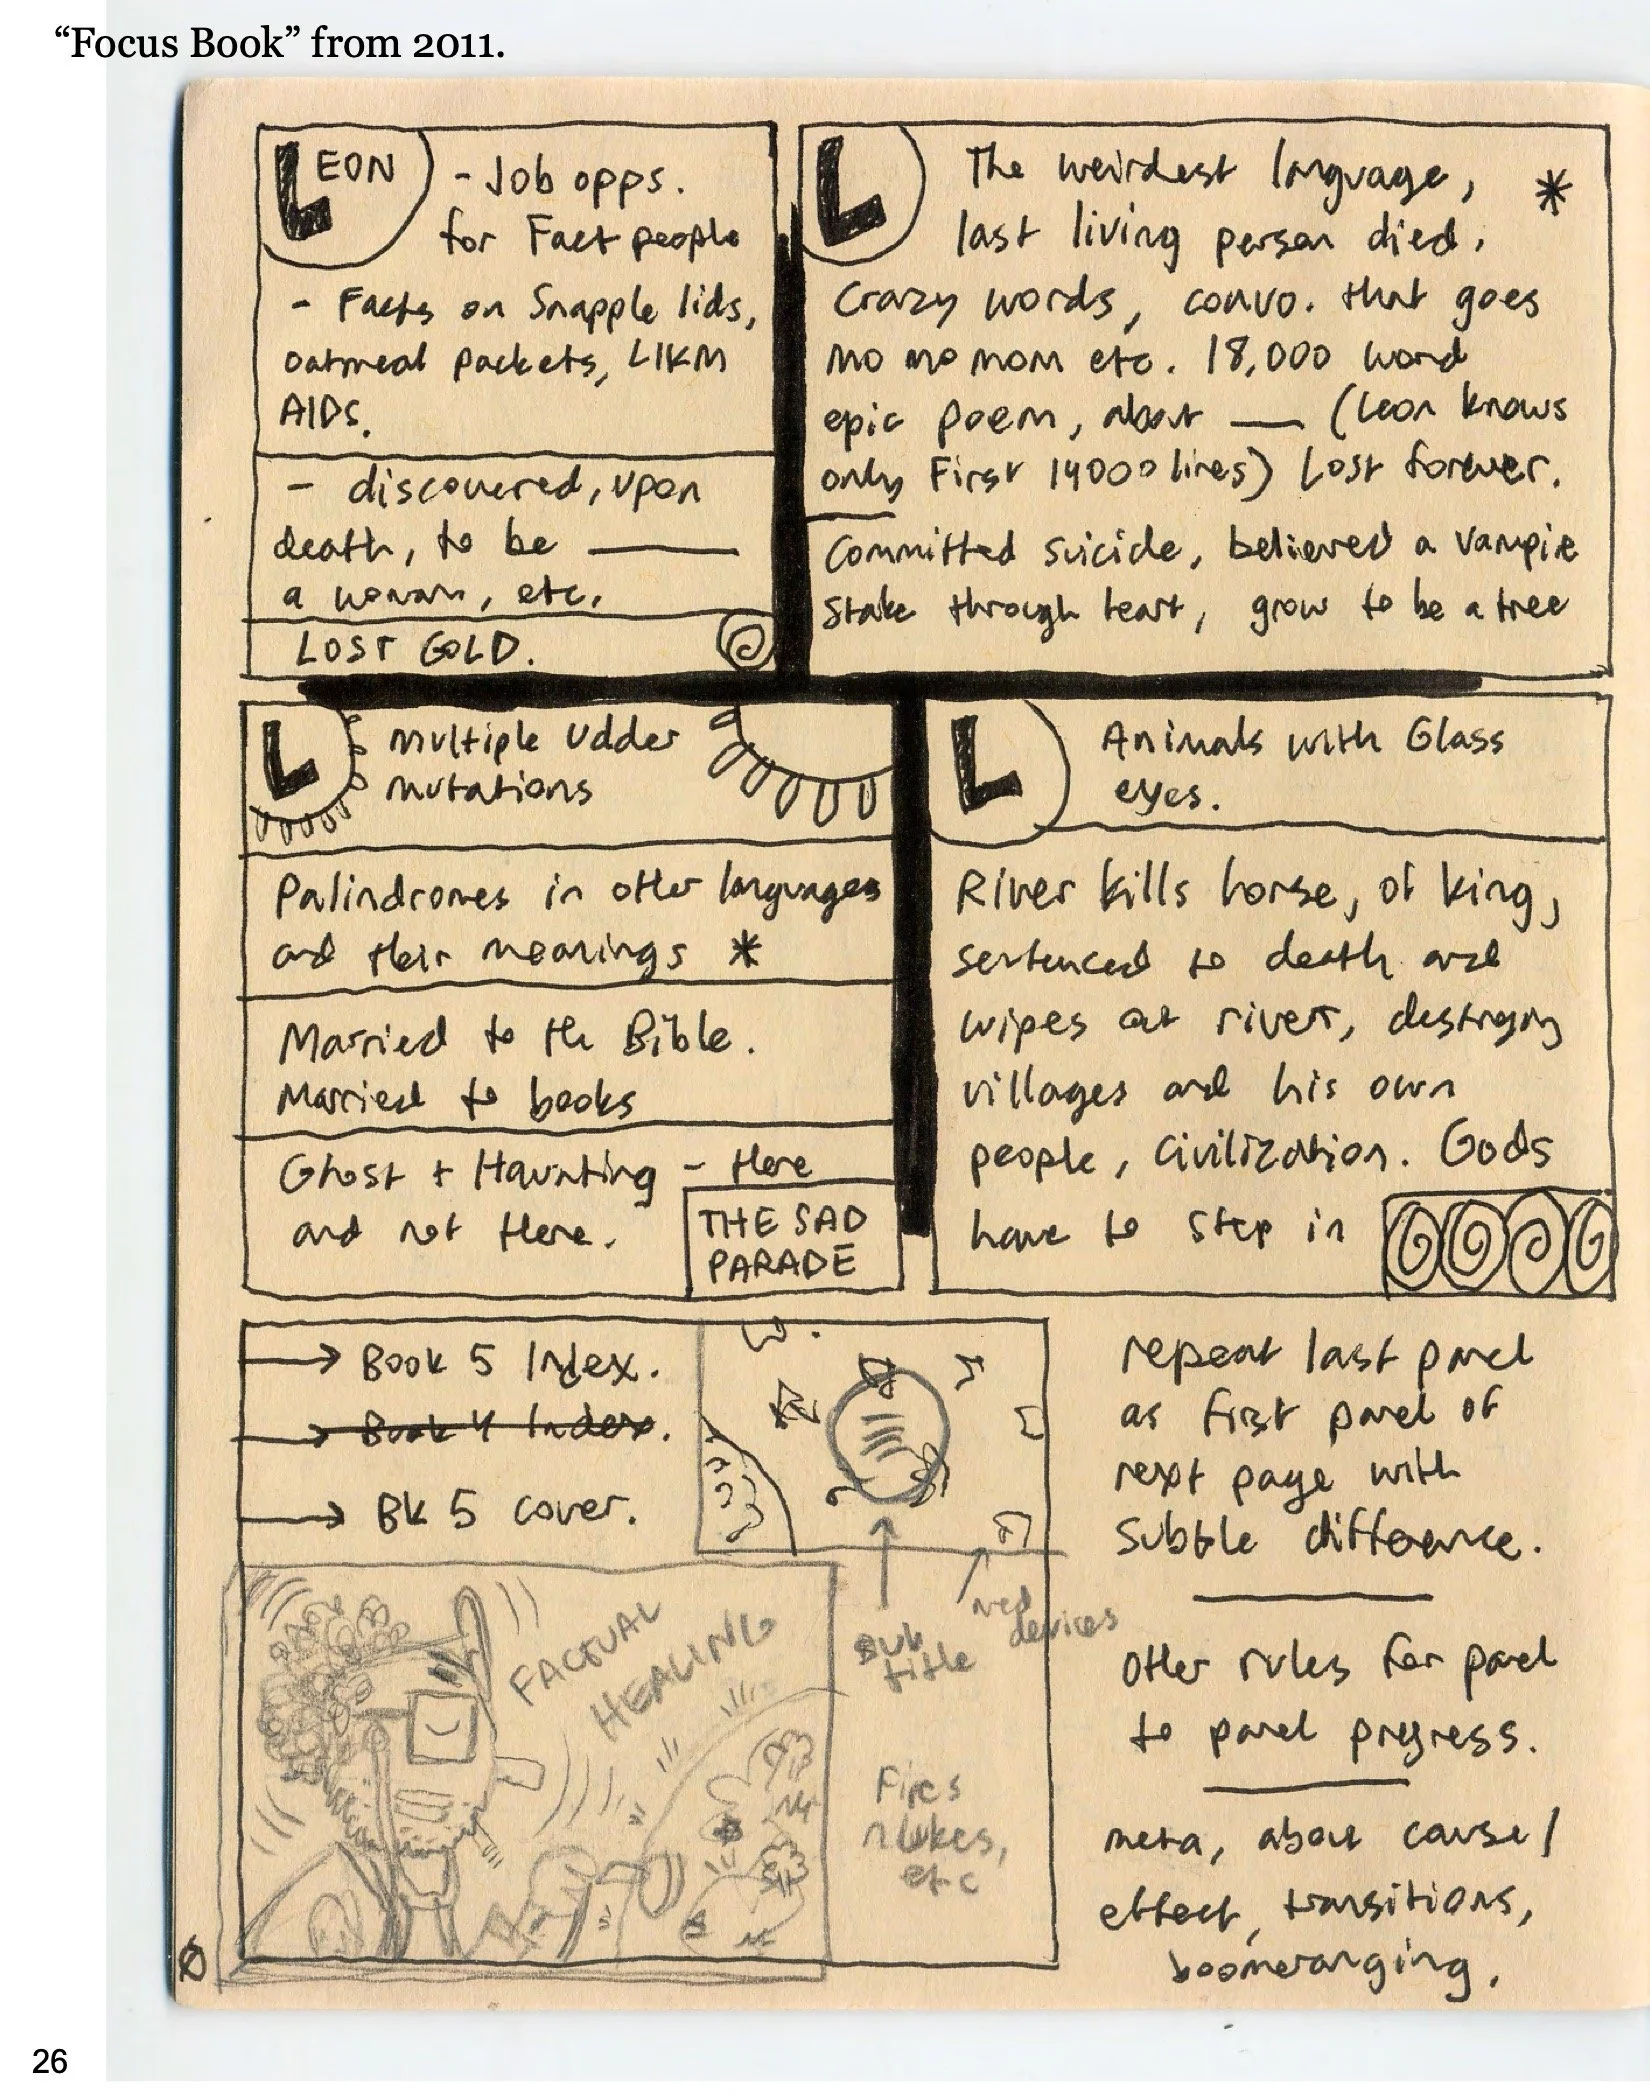 “Focus Book” from 2011.
LEON - Job opps.
for Fact people
- Facts on Snapple lids,
oatmeal packets, LIKM
AIDS.
- discovered, upon
death, to be ____
a woman, etc.
LOST GOLD.
L The weirdest language, *
last living person died.
Crazy words, convo. that goes
mo mo mom etc. 18,000 word
epic poem, about __ (Leon knows
only First 14000 lines) Lost forever.
Committed suicide, believed a vampire
stake through heart, grow to be a tree
L multiple udder
mutations
Palindromes in other languages
and their meanings *
Married to the Bible.
Married to books
Ghost + Haunting - there
and not there.
THE SAD
PARADE
L Animals with Glass
eyes.
River kills horse, of king,
sentenced to death and
wipes out river, destroying
villages and his own
people, civilization. Gods
have to step in
→ Book 5 Index.
→ Book 4 Index.
→ Bk 5 cover.
sub
title
devices
FACTUAL
HEALING
Fires
nukes,
etc
repeat last panel
as first panel of
next page with
subtle difference.
other rules for panel
to panel progress.
meta, about cause/
effect, transitions,
boomeranging.
26